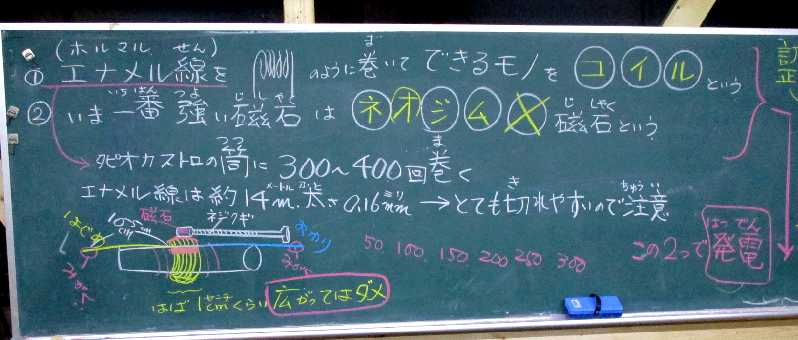 (ホルマル せん)
① エナメル線を のように巻いて できるモノを コイル という
② いま一番 強い磁石 は ネオジム 磁石という
タピオカストロの筒に 300〜400回巻く
エナメル線は約14m. 太さ0.16mm →とても切れやすいので注意
磁石 ネジクギ
はじめ おわり
はば1cmくらい 広がってはダメ
50 100 150 200 250 300
この2つで 発電
訂正